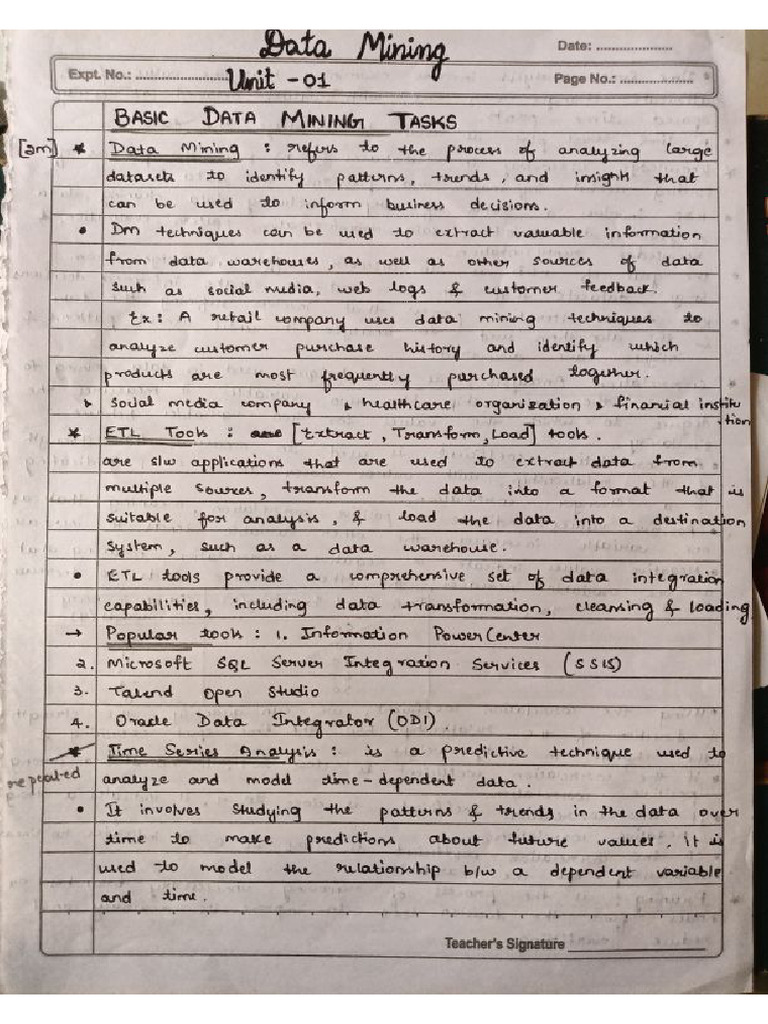 Data Mining
Date: ....................
Expt. No.: ............................
Unit - 01
Page No.: ....................
BASIC DATA MINING TASKS
[2m] * Data Mining : refers to the process of analyzing large
datasets to identify patterns, trends, and insights that
can be used to inform business decisions.
• Dm techniques can be used to extract valuable information
from data warehouses, as well as other sources of data
such as social media, web logs & customer feedback.
Ex: A retail company uses data mining techniques to
analyze customer purchase history and identify which
products are most frequently purchased together.
social media company healthcare organization financial institution
* ETL Tools : [Extract, Transform, Load] tools.
are s/w applications that are used to extract data from
multiple sources, transform the data into a format that is
suitable for analysis, & load the data into a destination
system, such as a data warehouse.
• ETL tools provide a comprehensive set of data integration
capabilities, including data transformation, cleansing & loading
→ Popular tools : 1. Information PowerCenter
2. Microsoft SQL Server Integration Services (SSIS)
3. Talend Open Studio
4. Oracle Data Integrator (ODI).
* Time Series Analysis : is a predictive technique used to
repeated analyze and model time-dependent data.
• It involves studying the patterns & trends in the data over
time to make predictions about future values. it is
used to model the relationship b/w a dependent variable
and time.
Teacher's Signature